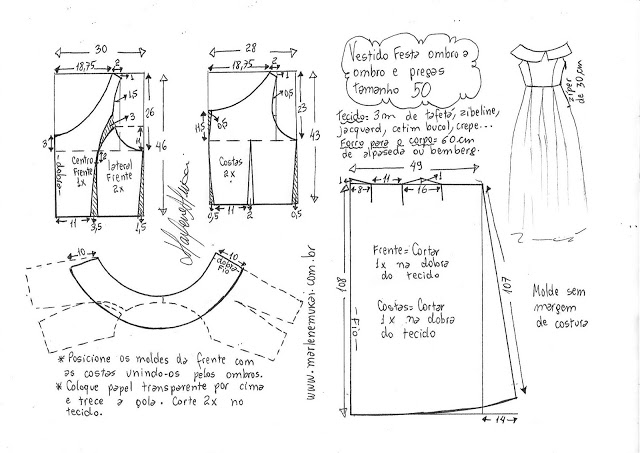 30
18,75
2
1
1,5
26
3
3
2
46
-dobra-
Centro
Frente
1x
lateral
Frente
2x
11
3,5
1,5
28
18,75
2
1
0,5
23
43
11,5
0,5
Costas
2x
0,5
11
2
0,5
Marlene Mukai
Vestido Festa ombro a
ombro e pregas
tamanho 50
Tecido: 3m de tafetá, zibeline,
jacquard, cetim bucol, crepe...
Forro para o corpo: 60cm
de alpaseda ou bemberg.
zíper
de 30cm
49
1
8
11
16
1
108
-Fio-
107
14
Frente = Cortar
1x na dobra
do tecido
Costas = Cortar
1x na dobra
do tecido
Molde sem
margem
de costura
10
10
dobra
Fio
* Posicione os moldes da frente com
as costas unindo-os pelos ombros.
* Coloque papel transparente por cima
e trece a gola. Corte 2x no
tecido.
www.marlenemukai.com.br